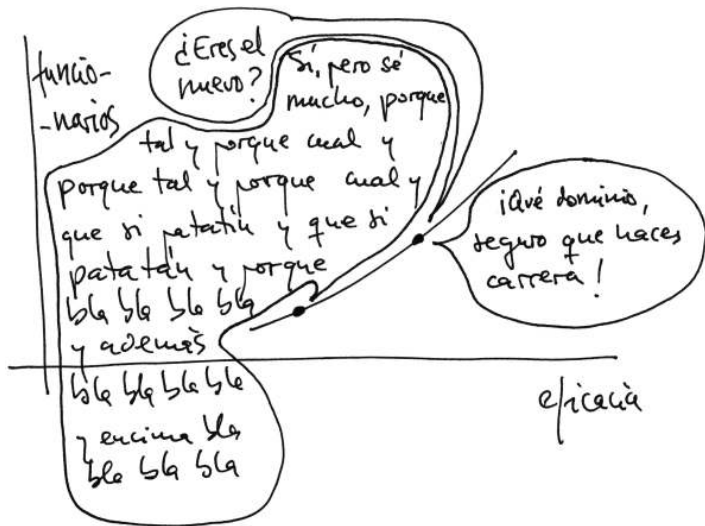 funcio-
-narios
¿Eres el
nuevo?
Sí, pero sé
mucho, porque
tal y porque cual y
porque tal y porque cual y
que si patatín y que si
patatán y porque
bla bla bla bla
y además
bla bla bla bla
y encima bla
bla bla bla
¡Qué dominio,
seguro que haces
carrera!
eficacia